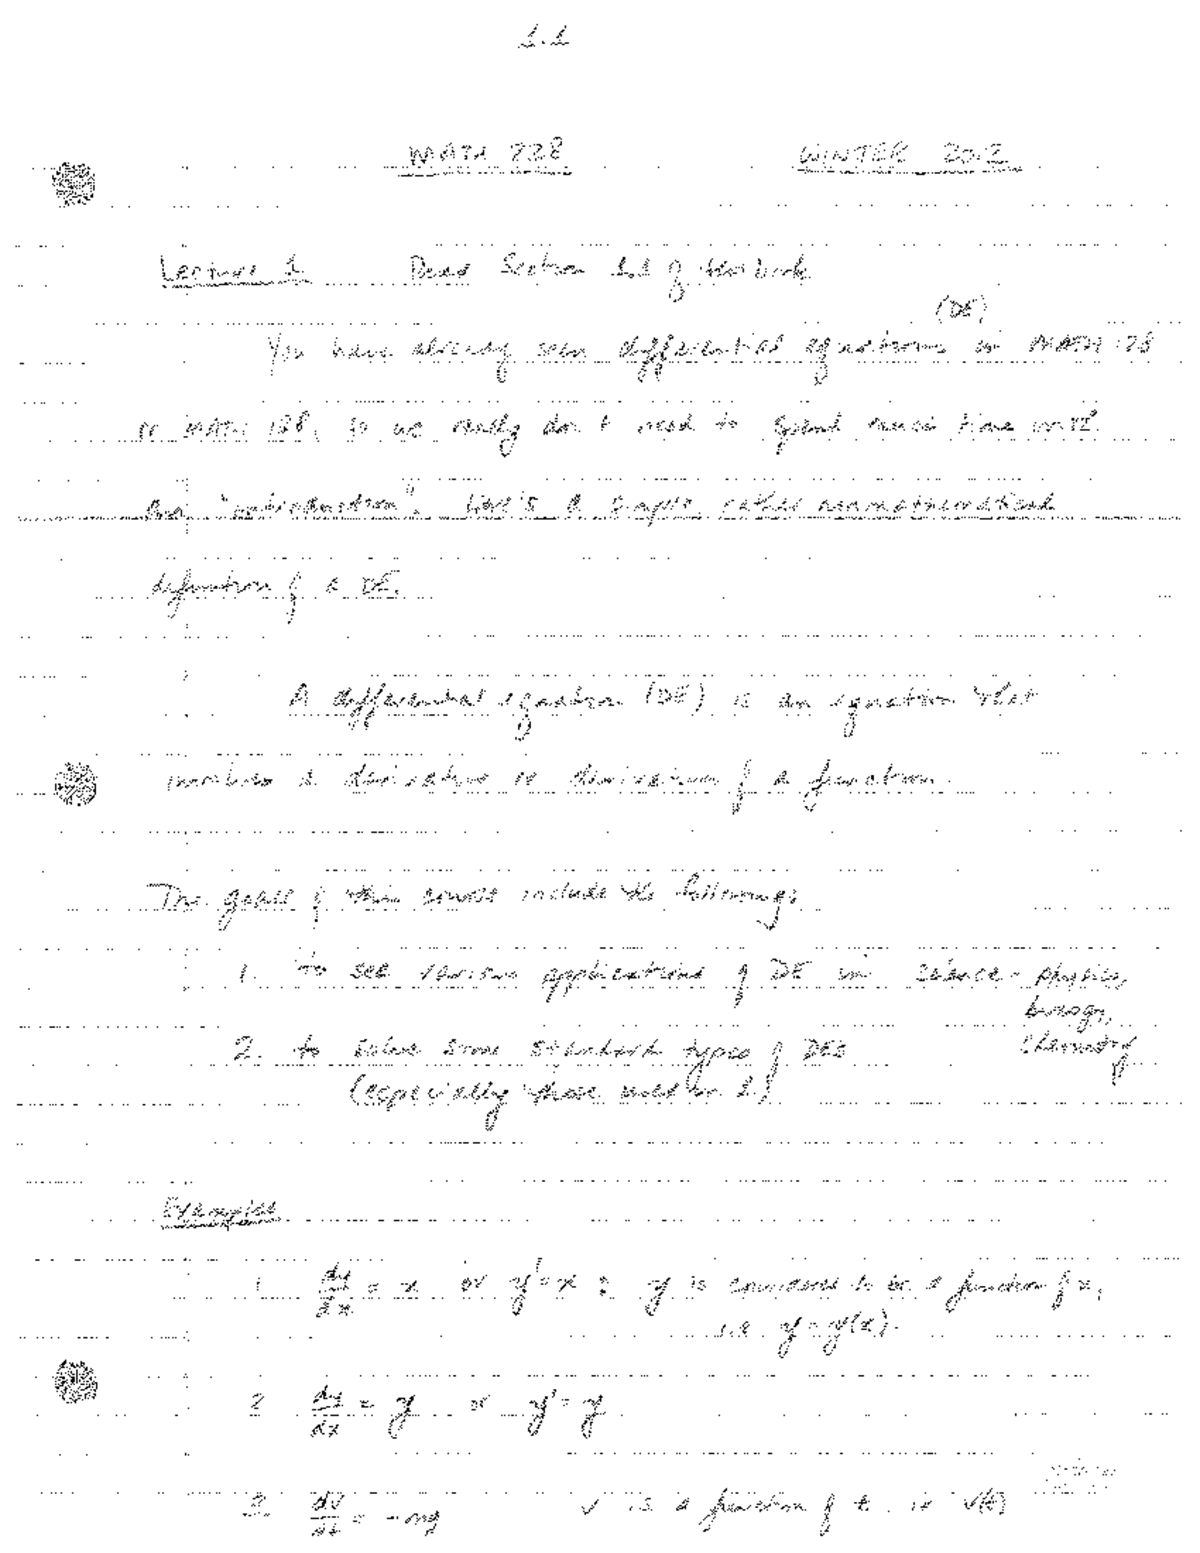 1.1
MATH 228 WINTER 2012
Lecture 1 Read Section 1.1 of textbook
(DE)
You have already seen differential equations in MATH 128
or MATH 128, so we really don't need to spend much time with
an "introduction". Here's a simple, rather nonmathematical
definition of a DE.
A differential equation (DE) is an equation that
involves a derivative or derivatives of a function.
The goals of this course include the following:
1. to see various applications of DE in science - physics,
biology,
chemistry
2. to solve some standard types of DEs
(especially those used in 1.)
Examples
1. dy/dx = x or y' = x : y is considered to be a function of x,
i.e. y = y(x).
2. dy/dx = y or y' = y
3. dv/dt = -mg v is a function of t i.e. v(t)